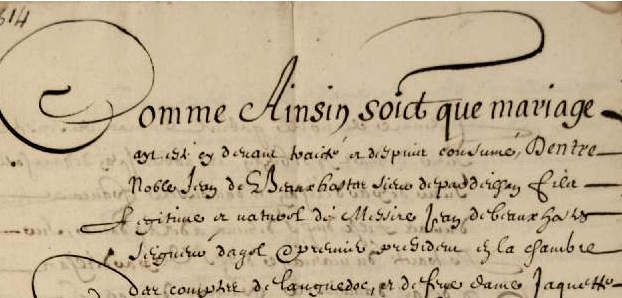 614
Comme Ainsin soict que mariage
aye esté cy devant traicté et despuis consumé, Dentre
Noble Jean de Beauxhostes sieur de
legitime et naturel de Messire Jean de beauxhostes
Seigneur dagel et premier president en la chambre
des comptes de languedoc, et de feue dame Jaquette